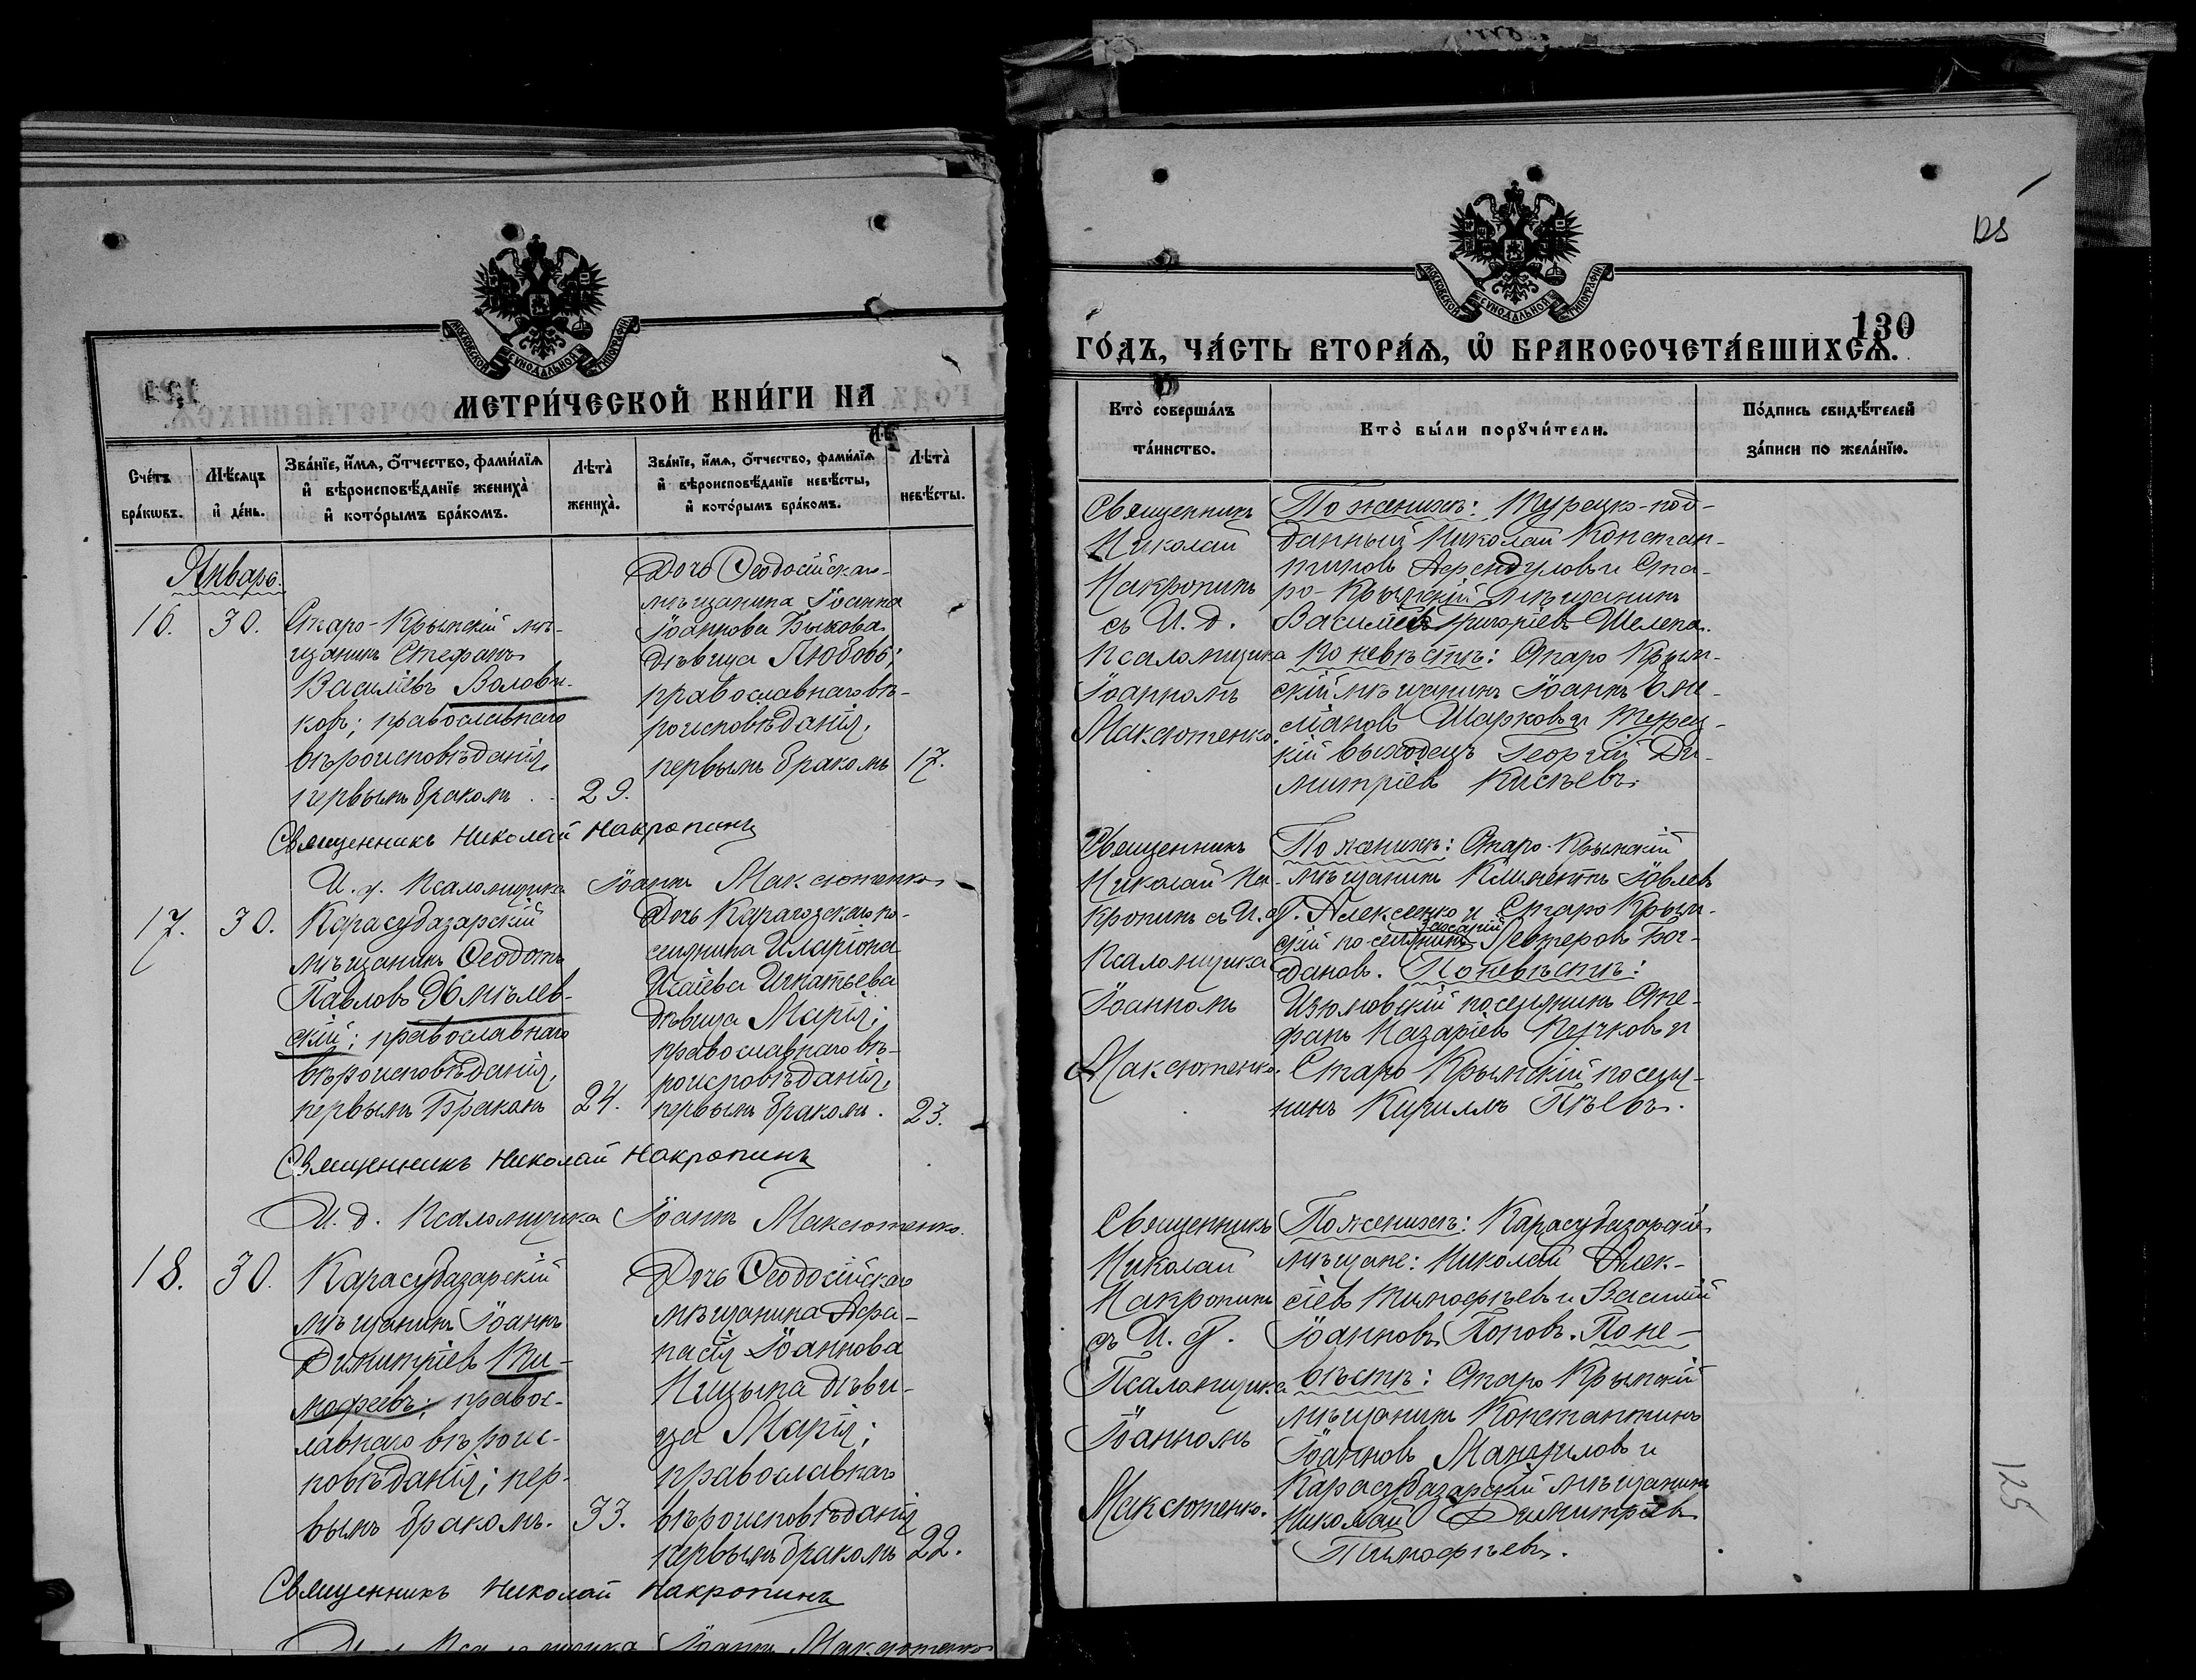 МЕТРИ́ЧЕСКОЙ КНИ́ГИ НА
Сче́тъ бра́кѡвъ.
Мѣ́сяцъ и҆ де́нь.
Зва́нїе, и҆́мѧ, ѻ҆́тчество, фами́лїѧ и҆ вѣроисповѣ́данїе жениха̀ и҆ кото́рымъ бра́комъ.
Лѣта̀ жениха̀.
Зва́нїе, и҆́мѧ, ѻ҆́тчество, фами́лїѧ и҆ вѣроисповѣ́данїе невѣ́сты, и҆ кото́рымъ бра́комъ.
Лѣта̀ невѣ́сты.
Январь.
16.
30.
Старо-Крымскій мѣ-
щанинъ Стефанъ
Василіевъ Волови-
ковъ; православнаго
вѣроисповѣданія,
первымъ бракомъ
29.
Дочь Ѳеодосійскаго
мѣщанина Іоанна
Іоаннова Быкова
дѣвица Любовь;
православнаго вѣ-
роисповѣданія,
первымъ бракомъ
17.
Священникъ Николай Макропинъ
И. д. Псаломщика Іоаннъ Максютенко
17.
30.
Карасубазарскій
мѣщанинъ Ѳеодотъ
Павловъ
скій; православнаго
вѣроисповѣданія,
первымъ бракомъ
24.
Дочь Карагозскаго по-
селянина Иларіона
Исаіева Игнатьева
дѣвица Марія;
православнаго вѣ-
роисповѣданія,
первымъ бракомъ.
23.
Священникъ Николай Макропинъ
И. д. Псаломщика Іоаннъ Максютенко.
18.
30.
Карасубазарскій
мѣщанинъ Іоаннъ
Димитріевъ Ти-
мофеевъ; правос-
лавнаго вѣроис-
повѣданія; пер-
вымъ бракомъ.
33.
Дочь Ѳеодосійскаго
мѣщанина Аѳа-
насія Іоаннова
Ницына дѣви-
ца Марія;
православнаго
вѣроисповѣданія
первымъ бракомъ
22.
Священникъ Николай Макропинъ
И. д. Псаломщика Іоаннъ Максютенко
125
130
ГО́ДЪ, ЧА́СТЬ ВТОРА́Ѧ, Ѡ҆ БРАКОСОЧЕТА́ВШИХСѦ.
Кто̀ соверша́лъ та́инство.
Кто̀ бы́ли порꙋчи́тели.
По́дпись свидѣ́телей за́писи по жела́нїю.
Священникъ
Николай
Макропинъ
съ И. д.
Псаломщика
Іоанномъ
Максютенко
По женихѣ: Турецко-под-
данный Николай Констан-
тиновъ Аерендуловъ и Ста-
ро-Крымскій мѣщанинъ
Василій Григоріевъ Шелепа.
По невѣстѣ: Старо Крым-
скій мѣщанинъ Іоаннъ Еме-
ліановъ Шарковъ и Турец-
кій выходецъ Георгій Ди-
митріевъ Кисѣевъ.
Священникъ
Николай Ма-
кропинъ съ И. д.
Псаломщика
Іоанномъ
Максютенко.
По женихѣ: Старо-Крымскій
мѣщанинъ Климентъ Іовлевъ
Алексенко и Старо Крым-
скій поселянинъ Захарій Несте­ровъ Бог-
дановъ. По невѣстѣ:
Изюмовскій поселянинъ Сте-
фанъ Назаріевъ Пучковъ и
Старо Крымскій поселя-
нинъ Кириллъ Гнѣевъ.
Священникъ
Николай
Макропинъ
съ И. д.
Псаломщика
Іоанномъ
Максютенко.
По женихѣ: Карасубазарскіе
мѣщане: Николай Алек-
сіевъ Тимофѣевъ и Василій
Іоанновъ Поповъ. По не-
вѣстѣ: Старо Крымскій
мѣщанинъ Константинъ
Іоанновъ Мануиловъ и
Карасубазарскій мѣщанинъ
Николай Димитріевъ
Тимофѣевъ.
125